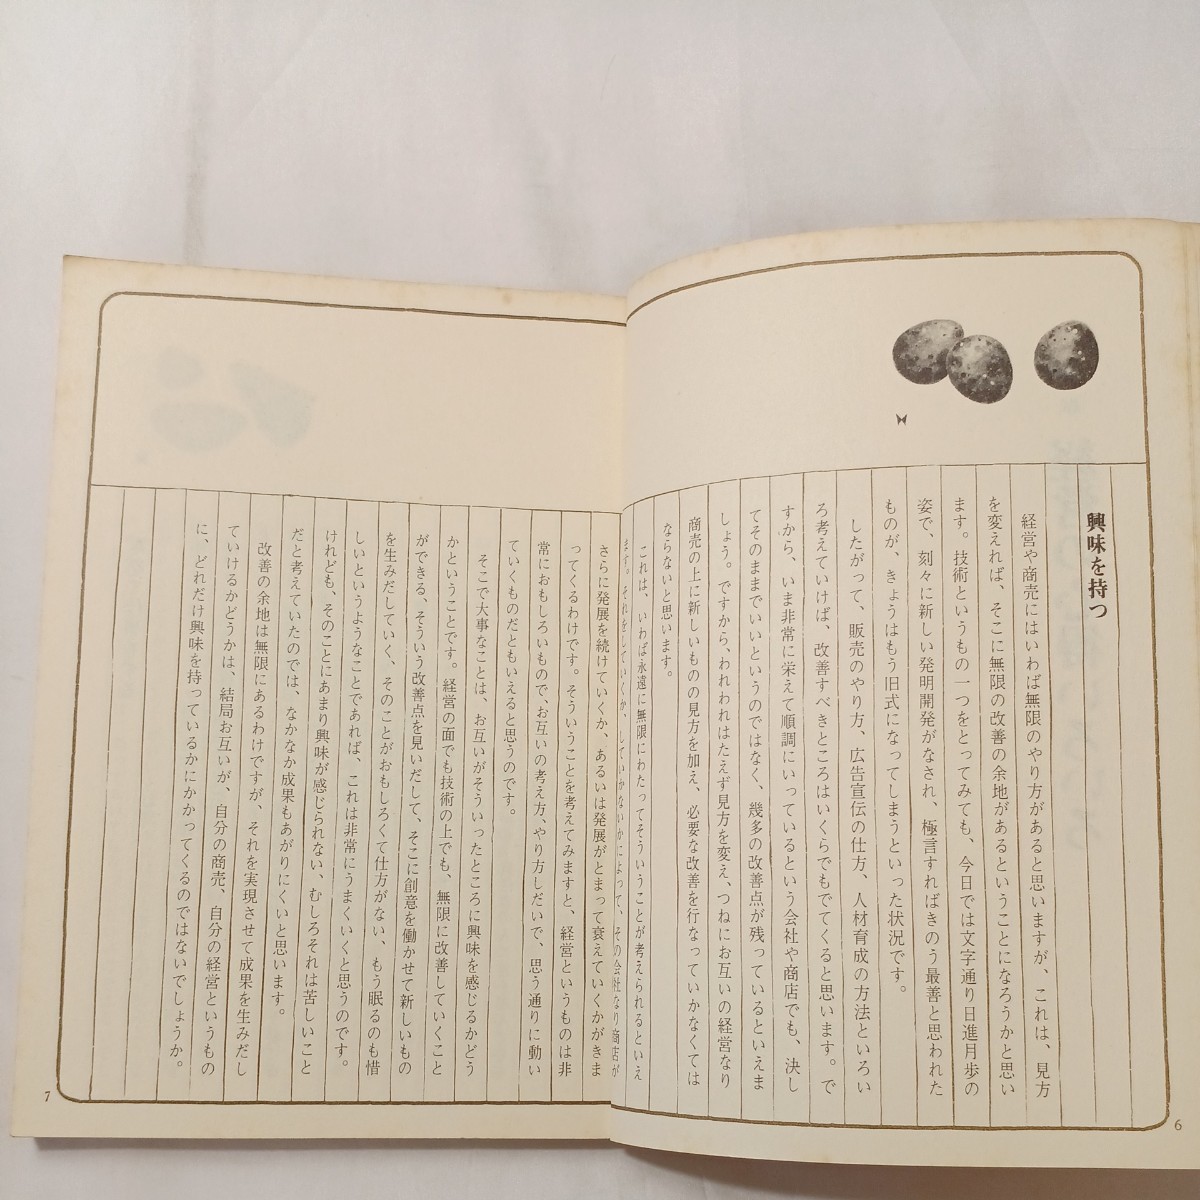 興味を持つ
経営や商売にはいわば無限のやり方があると思いますが、これは、見方
を変えれば、そこに無限の改善の余地があるということになろうかと思い
ます。技術というもの一つをとってみても、今日では文字通り日進月歩の
姿で、刻々に新しい発明開発がなされ、極言すればきのう最善と思われた
ものが、きょうはもう旧式になってしまうといった状況です。
したがって、販売のやり方、広告宣伝の仕方、人材育成の方法といろい
ろ考えていけば、改善すべきところはいくらでもでてくると思います。で
すから、いま非常に栄えて順調にいっているという会社や商店でも、決し
てそのままでいいというのではなく、幾多の改善点が残っているといえま
しょう。ですから、われわれはたえず見方を変え、つねにお互いの経営なり
商売の上に新しいものの見方を加え、必要な改善を行なっていかなくては
ならないと思います。
これは、いわば永遠に無限にわたってそういうことが考えられるといえ
ます。それをしていくか、していかないかによって、その会社なり商店が
6
さらに発展を続けていくか、あるいは発展がとまって衰えていくかがきま
ってくるわけです。そういうことを考えてみますと、経営というものは非
常におもしろいもので、お互いの考え方、やり方しだいで、思う通りに動い
ていくものだともいえると思うのです。
そこで大事なことは、お互いがそういったところに興味を感じるかどう
かということです。経営の面でも技術の上でも、無限に改善していくこと
ができる、そういう改善点を見いだして、そこに創意を働かせて新しいもの
を生みだしていく、そのことがおもしろくて仕方がない、もう眠るのも惜
しいというようなことであれば、これは非常にうまくいくと思うのです。
けれども、そのことにあまり興味が感じられない、むしろそれは苦しいこと
だと考えていたのでは、なかなか成果もあがりにくいと思います。
改善の余地は無限にあるわけですが、それを実現させて成果を生みだし
ていけるかどうかは、結局お互いが、自分の商売、自分の経営というもの
に、どれだけ興味を持っているかにかかってくるのではないでしょうか。
7